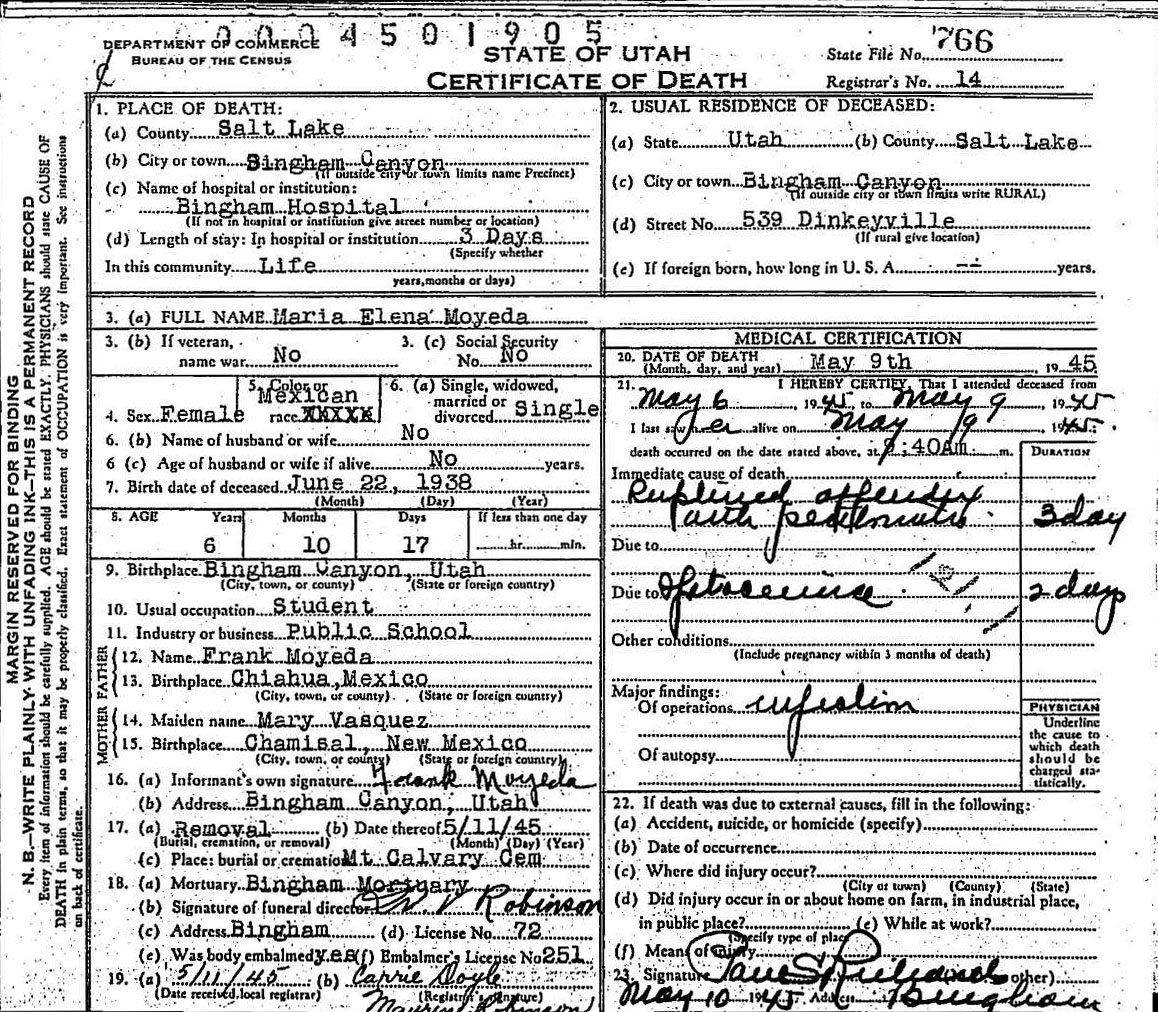 0 0 0 4 5 0 1 9 0 5
DEPARTMENT OF COMMERCE
BUREAU OF THE CENSUS
STATE OF UTAH
CERTIFICATE OF DEATH
State File No. 766
Registrar's No. 14
MARGIN RESERVED FOR BINDING
N. B.—WRITE PLAINLY WITH UNFADING INK—THIS IS A PERMANENT RECORD
Every item of information should be carefully supplied. AGE should be stated EXACTLY. PHYSICIANS should state CAUSE OF
DEATH in plain terms, so that it may be properly classified. Exact statement of OCCUPATION is very important. See instructions
on back of certificate.
1. PLACE OF DEATH:
(a) County Salt Lake
(b) City or town Bingham Canyon
(If outside city or town limits name Precinct)
(c) Name of hospital or institution:
Bingham Hospital
(If not in hospital or institution give street number or location)
(d) Length of stay: In hospital or institution 3 Days
(Specify whether
In this community Life
years, months or days)
2. USUAL RESIDENCE OF DECEASED:
(a) State Utah (b) County Salt Lake
(c) City or town Bingham Canyon
(If outside city or town limits write RURAL)
(d) Street No. 539 Dinkeyville
(If rural give location)
(e) If foreign born, how long in U. S. A. -- years.
3. (a) FULL NAME Maria Elena Moyeda
3. (b) If veteran, name war No
3. (c) Social Security No. No
4. Sex Female
5. Color or race Mexican
6. (a) Single, widowed, married or divorced Single
6. (b) Name of husband or wife No
6 (c) Age of husband or wife if alive No years.
7. Birth date of deceased June 22, 1938
(Month) (Day) (Year)
8. AGE Years Months Days If less than one day
6 10 17 hr. min.
9. Birthplace Bingham Canyon, Utah
(City, town, or county) (State or foreign country)
10. Usual occupation Student
11. Industry or business Public School
FATHER
12. Name Frank Moyeda
13. Birthplace Chiahua, Mexico
(City, town, or county) (State or foreign country)
MOTHER
14. Maiden name Mary Vasquez
15. Birthplace Chamisal, New Mexico
(City, town, or county) (State or foreign country)
16. (a) Informant's own signature Frank Moyeda
(b) Address Bingham Canyon, Utah
17. (a) Removal (b) Date thereof 5/11/45
(Burial, cremation, or removal) (Month) (Day) (Year)
(c) Place: burial or cremation Mt Calvary Cem
18. (a) Mortuary Bingham Mortuary
(b) Signature of funeral director Robinson
(c) Address Bingham (d) License No. 72
(e) Was body embalmed yes (f) Embalmer's License No 251
19. (a) 5/11/45 (b) Carrie Doyle
(Date received local registrar) (Registrar's signature)
Maurine Robinson
MEDICAL CERTIFICATION
20. DATE OF DEATH May 9th, 1945
(Month, day, and year)
21. I HEREBY CERTIFY, That I attended deceased from
May 6, 1945, to May 9, 1945
I last saw her alive on May 9, 1945.
death occurred on the date stated above, at :40AM m.
DURATION
Immediate cause of death
Ruptured appendix
with peritonitis 3 day
Due to
Due to 2 days
Other conditions
(Include pregnancy within 3 months of death)
Major findings:
Of operations
Of autopsy
PHYSICIAN
Underline
the cause to
which death
should be
charged sta-
tistically.
22. If death was due to external causes, fill in the following:
(a) Accident, suicide, or homicide (specify)
(b) Date of occurrence
(c) Where did injury occur?
(City or town) (County) (State)
(d) Did injury occur in or about home on farm, in industrial place,
in public place? (e) While at work?
(Specify type of place)
(f) Means of injury
23. Signature Paul S Richards other)
May 10 1945 Address Bingham